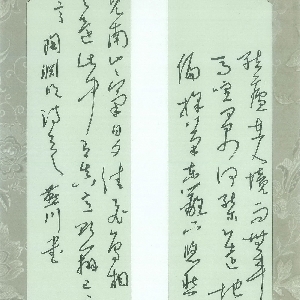 結廬在人境而無車
馬喧問君何能爾心遠地
偏採菊東籬下悠然
見南山山氣日夕佳飛鳥相
還此中有真意欲辨已
言 陶淵明詩 川書